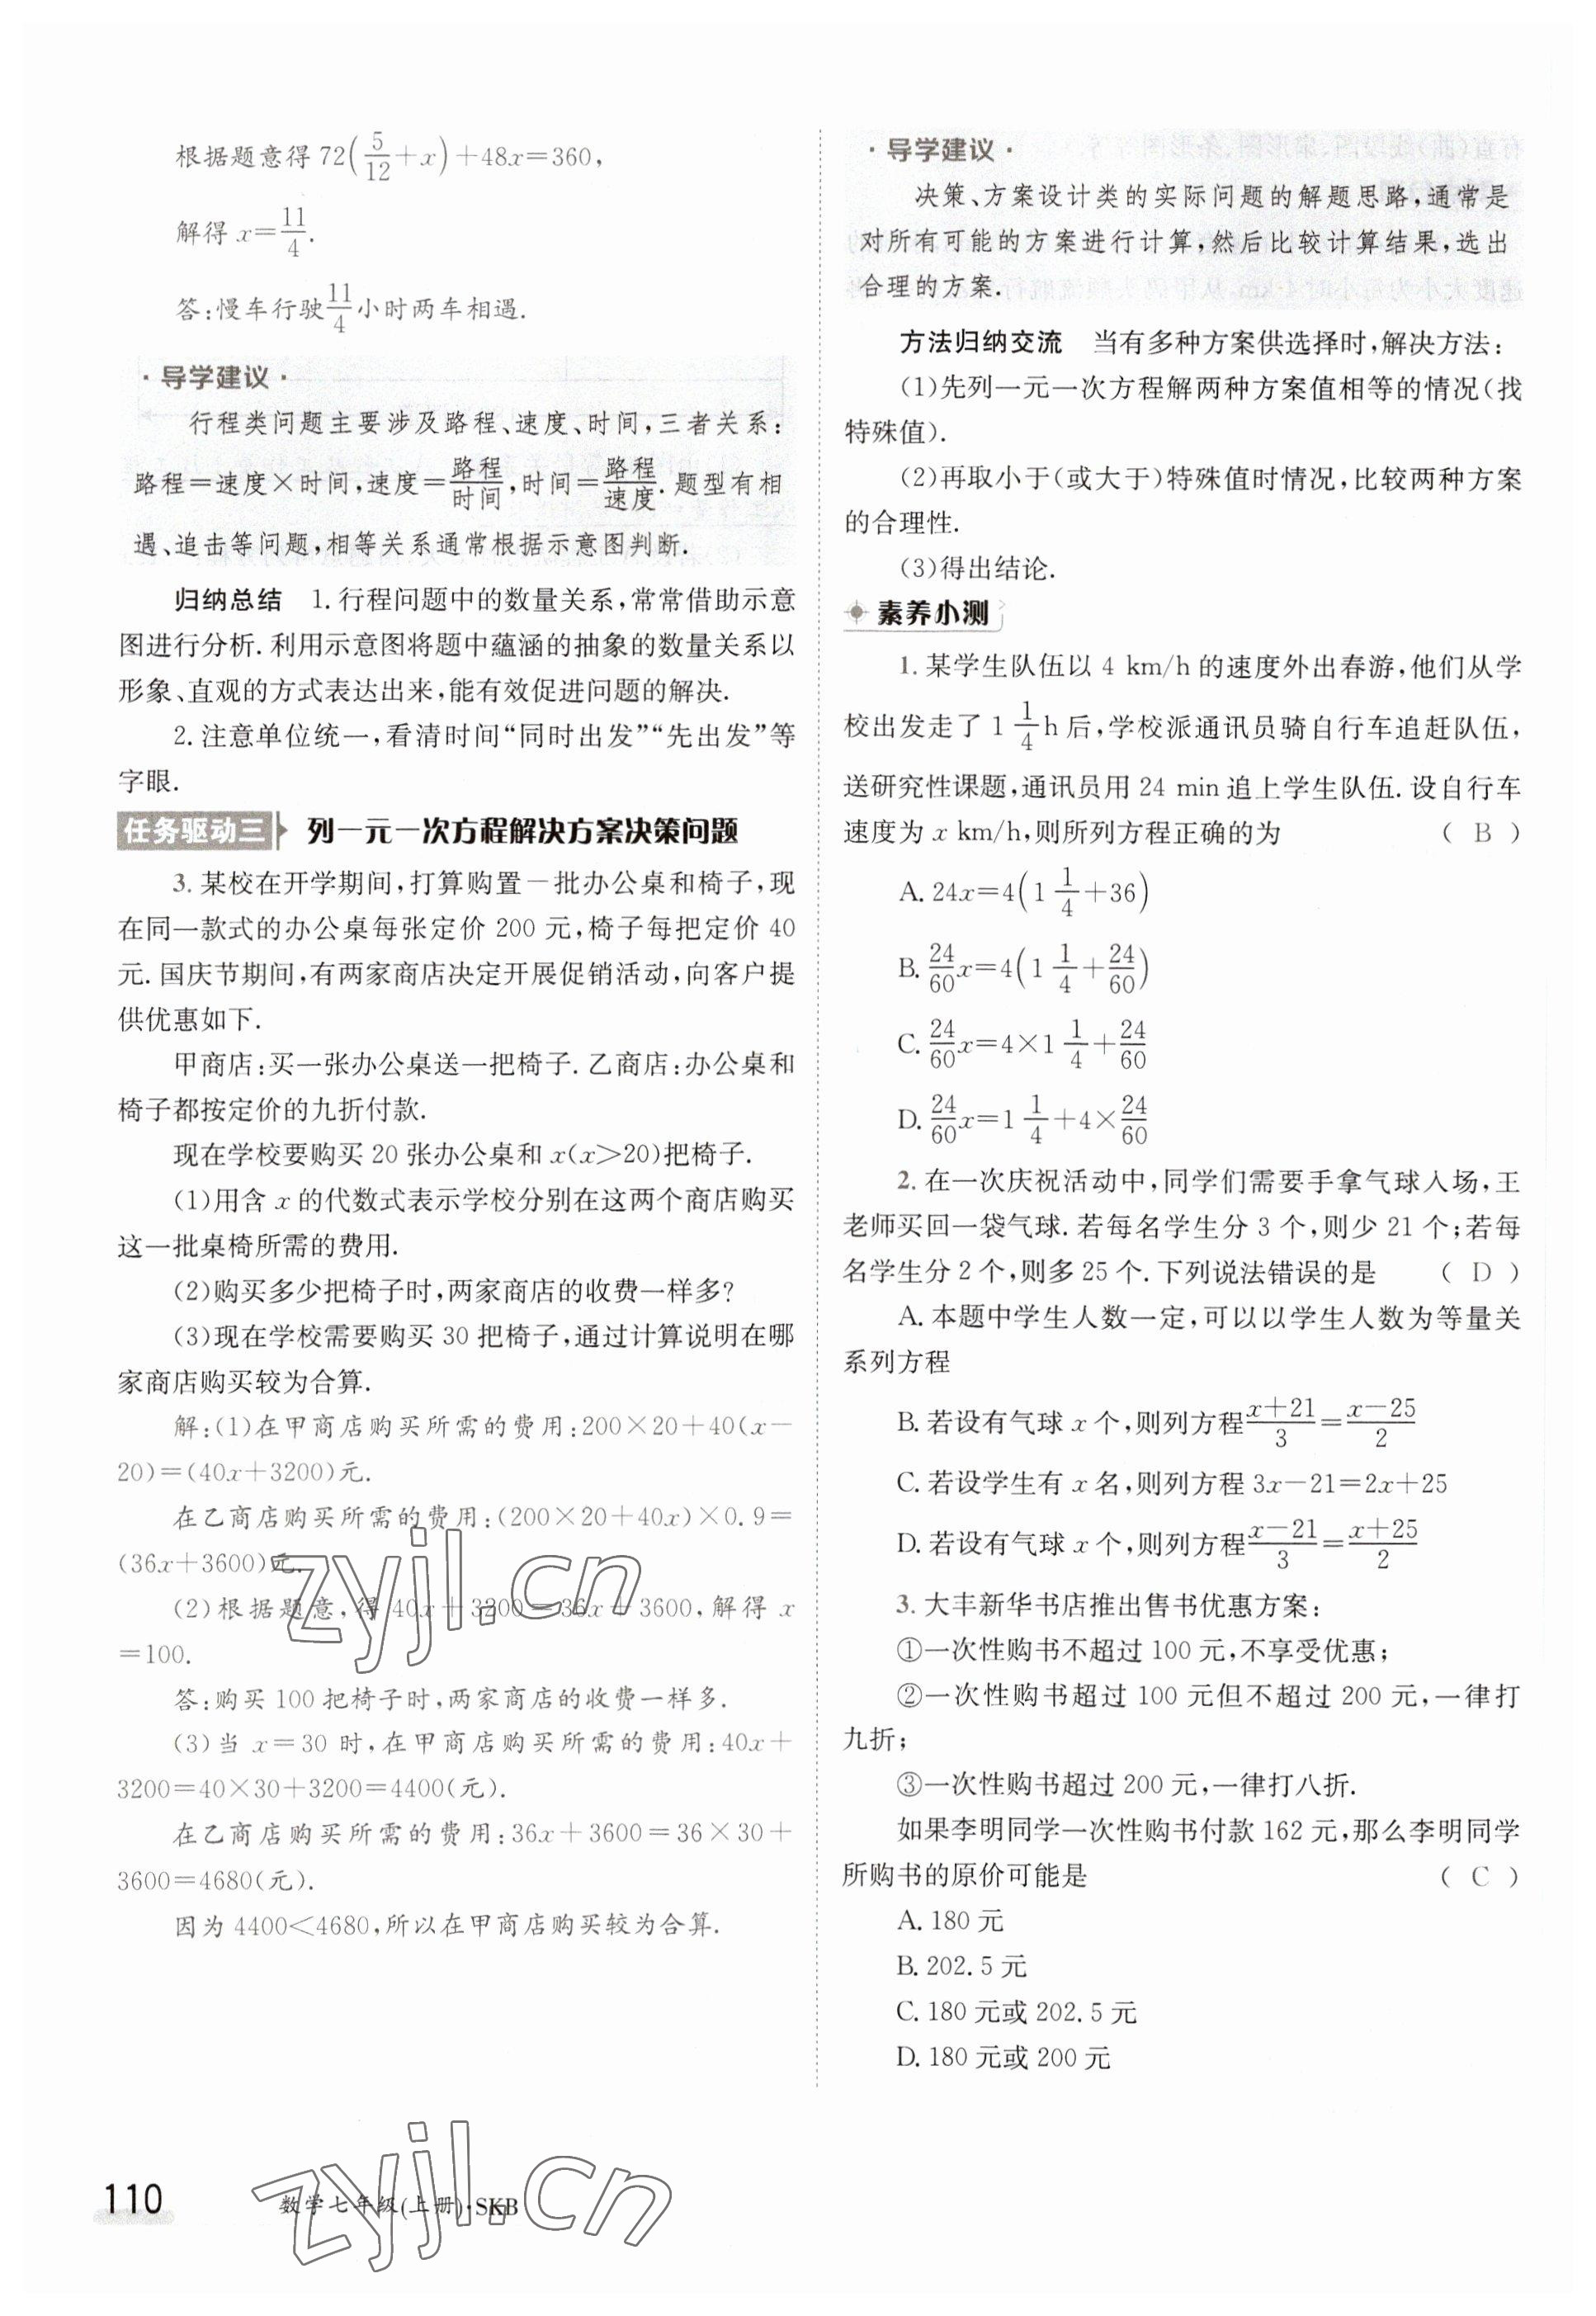 根据题意得 72(5/12+x)+48x=360,
解得 x=11/4.
答:慢车行驶11/4小时两车相遇.
·导学建议·
行程类问题主要涉及路程、速度、时间,三者关系:
路程=速度×时间,速度=路程/时间,时间=路程/速度.题型有相
遇、追击等问题,相等关系通常根据示意图判断.
归纳总结 1.行程问题中的数量关系,常常借助示意
图进行分析.利用示意图将题中蕴涵的抽象的数量关系以
形象、直观的方式表达出来,能有效促进问题的解决.
2.注意单位统一,看清时间“同时出发”“先出发”等
字眼.
任务驱动三 列一元一次方程解决方案决策问题
3.某校在开学期间,打算购置一批办公桌和椅子,现
在同一款式的办公桌每张定价 200 元,椅子每把定价 40
元.国庆节期间,有两家商店决定开展促销活动,向客户提
供优惠如下.
甲商店:买一张办公桌送一把椅子.乙商店:办公桌和
椅子都按定价的九折付款.
现在学校要购买 20 张办公桌和 x(x>20)把椅子.
(1)用含 x 的代数式表示学校分别在这两个商店购买
这一批桌椅所需的费用.
(2)购买多少把椅子时,两家商店的收费一样多?
(3)现在学校需要购买 30 把椅子,通过计算说明在哪
家商店购买较为合算.
解:(1)在甲商店购买所需的费用:200×20+40(x-
20)=(40x+3200)元.
在乙商店购买所需的费用:(200×20+40x)×0.9=
(36x+3600)元.
(2)根据题意,得 40x+3200=36x+3600,解得 x
=100.
答:购买 100 把椅子时,两家商店的收费一样多.
(3)当 x=30 时,在甲商店购买所需的费用:40x+
3200=40×30+3200=4400(元).
在乙商店购买所需的费用:36x+3600=36×30+
3600=4680(元).
因为 4400<4680,所以在甲商店购买较为合算.
·导学建议·
决策、方案设计类的实际问题的解题思路,通常是
对所有可能的方案进行计算,然后比较计算结果,选出
合理的方案.
方法归纳交流 当有多种方案供选择时,解决方法:
(1)先列一元一次方程解两种方案值相等的情况(找
特殊值).
(2)再取小于(或大于)特殊值时情况,比较两种方案
的合理性.
(3)得出结论.
素养小测
1.某学生队伍以 4 km/h 的速度外出春游,他们从学
校出发走了 1 1/4 h 后,学校派通讯员骑自行车追赶队伍,
送研究性课题,通讯员用 24 min 追上学生队伍.设自行车
速度为 x km/h,则所列方程正确的为 ( B )
A.24x=4(1 1/4+36)
B.24/60x=4(1 1/4+24/60)
C.24/60x=4×1 1/4+24/60
D.24/60x=1 1/4+4×24/60
2.在一次庆祝活动中,同学们需要手拿气球入场,王
老师买回一袋气球.若每名学生分 3 个,则少 21 个;若每
名学生分 2 个,则多 25 个.下列说法错误的是 ( D )
A.本题中学生人数一定,可以以学生人数为等量关
系列方程
B.若设有气球 x 个,则列方程(x+21)/3=(x-25)/2
C.若设学生有 x 名,则列方程 3x-21=2x+25
D.若设有气球 x 个,则列方程(x-21)/3=(x+25)/2
3.大丰新华书店推出售书优惠方案:
①一次性购书不超过 100 元,不享受优惠;
②一次性购书超过 100 元但不超过 200 元,一律打
九折;
③一次性购书超过 200 元,一律打八折.
如果李明同学一次性购书付款 162 元,那么李明同学
所购书的原价可能是 ( C )
A.180 元
B.202.5 元
C.180 元或 202.5 元
D.180 元或 200 元
zyjl.cn
zyjl.cn
110
数学七年级(上册)·SKB